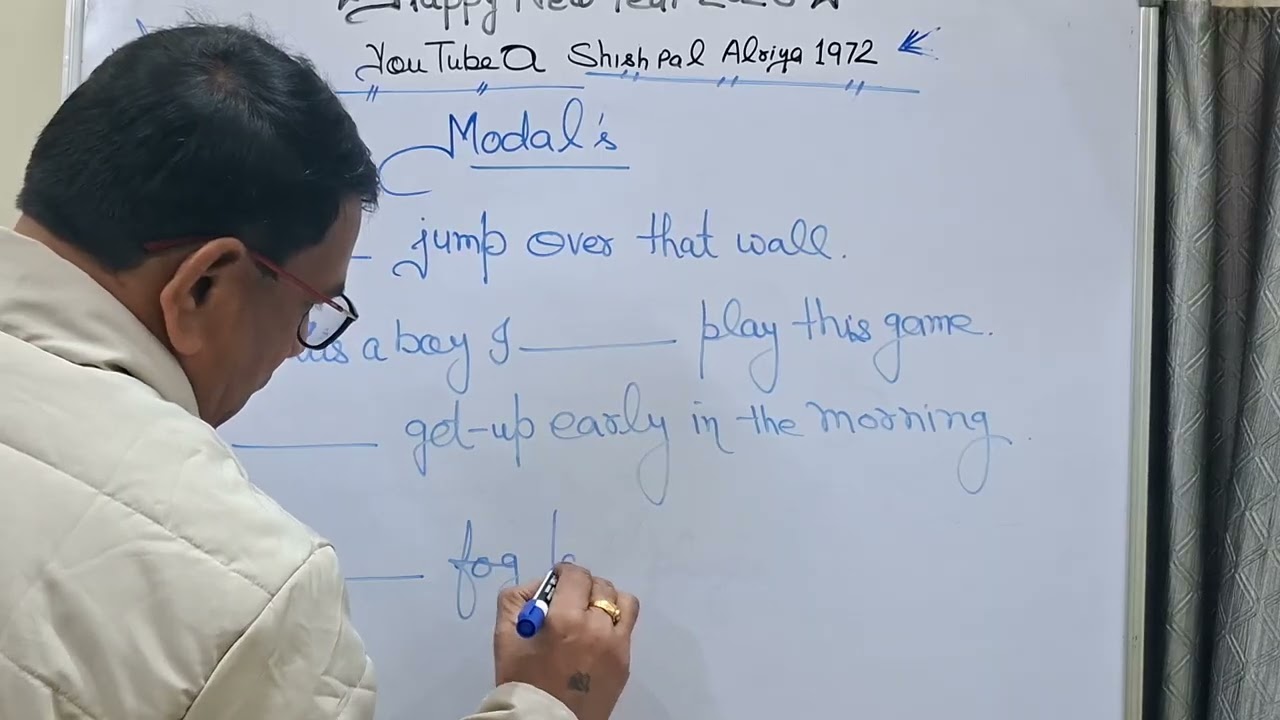 Happy New Year
YouTube Shish pal Alriya 1972
Modal's
jump over that wall.
a boy I ______ play this game.
______ get-up early in the morning.
______ fog